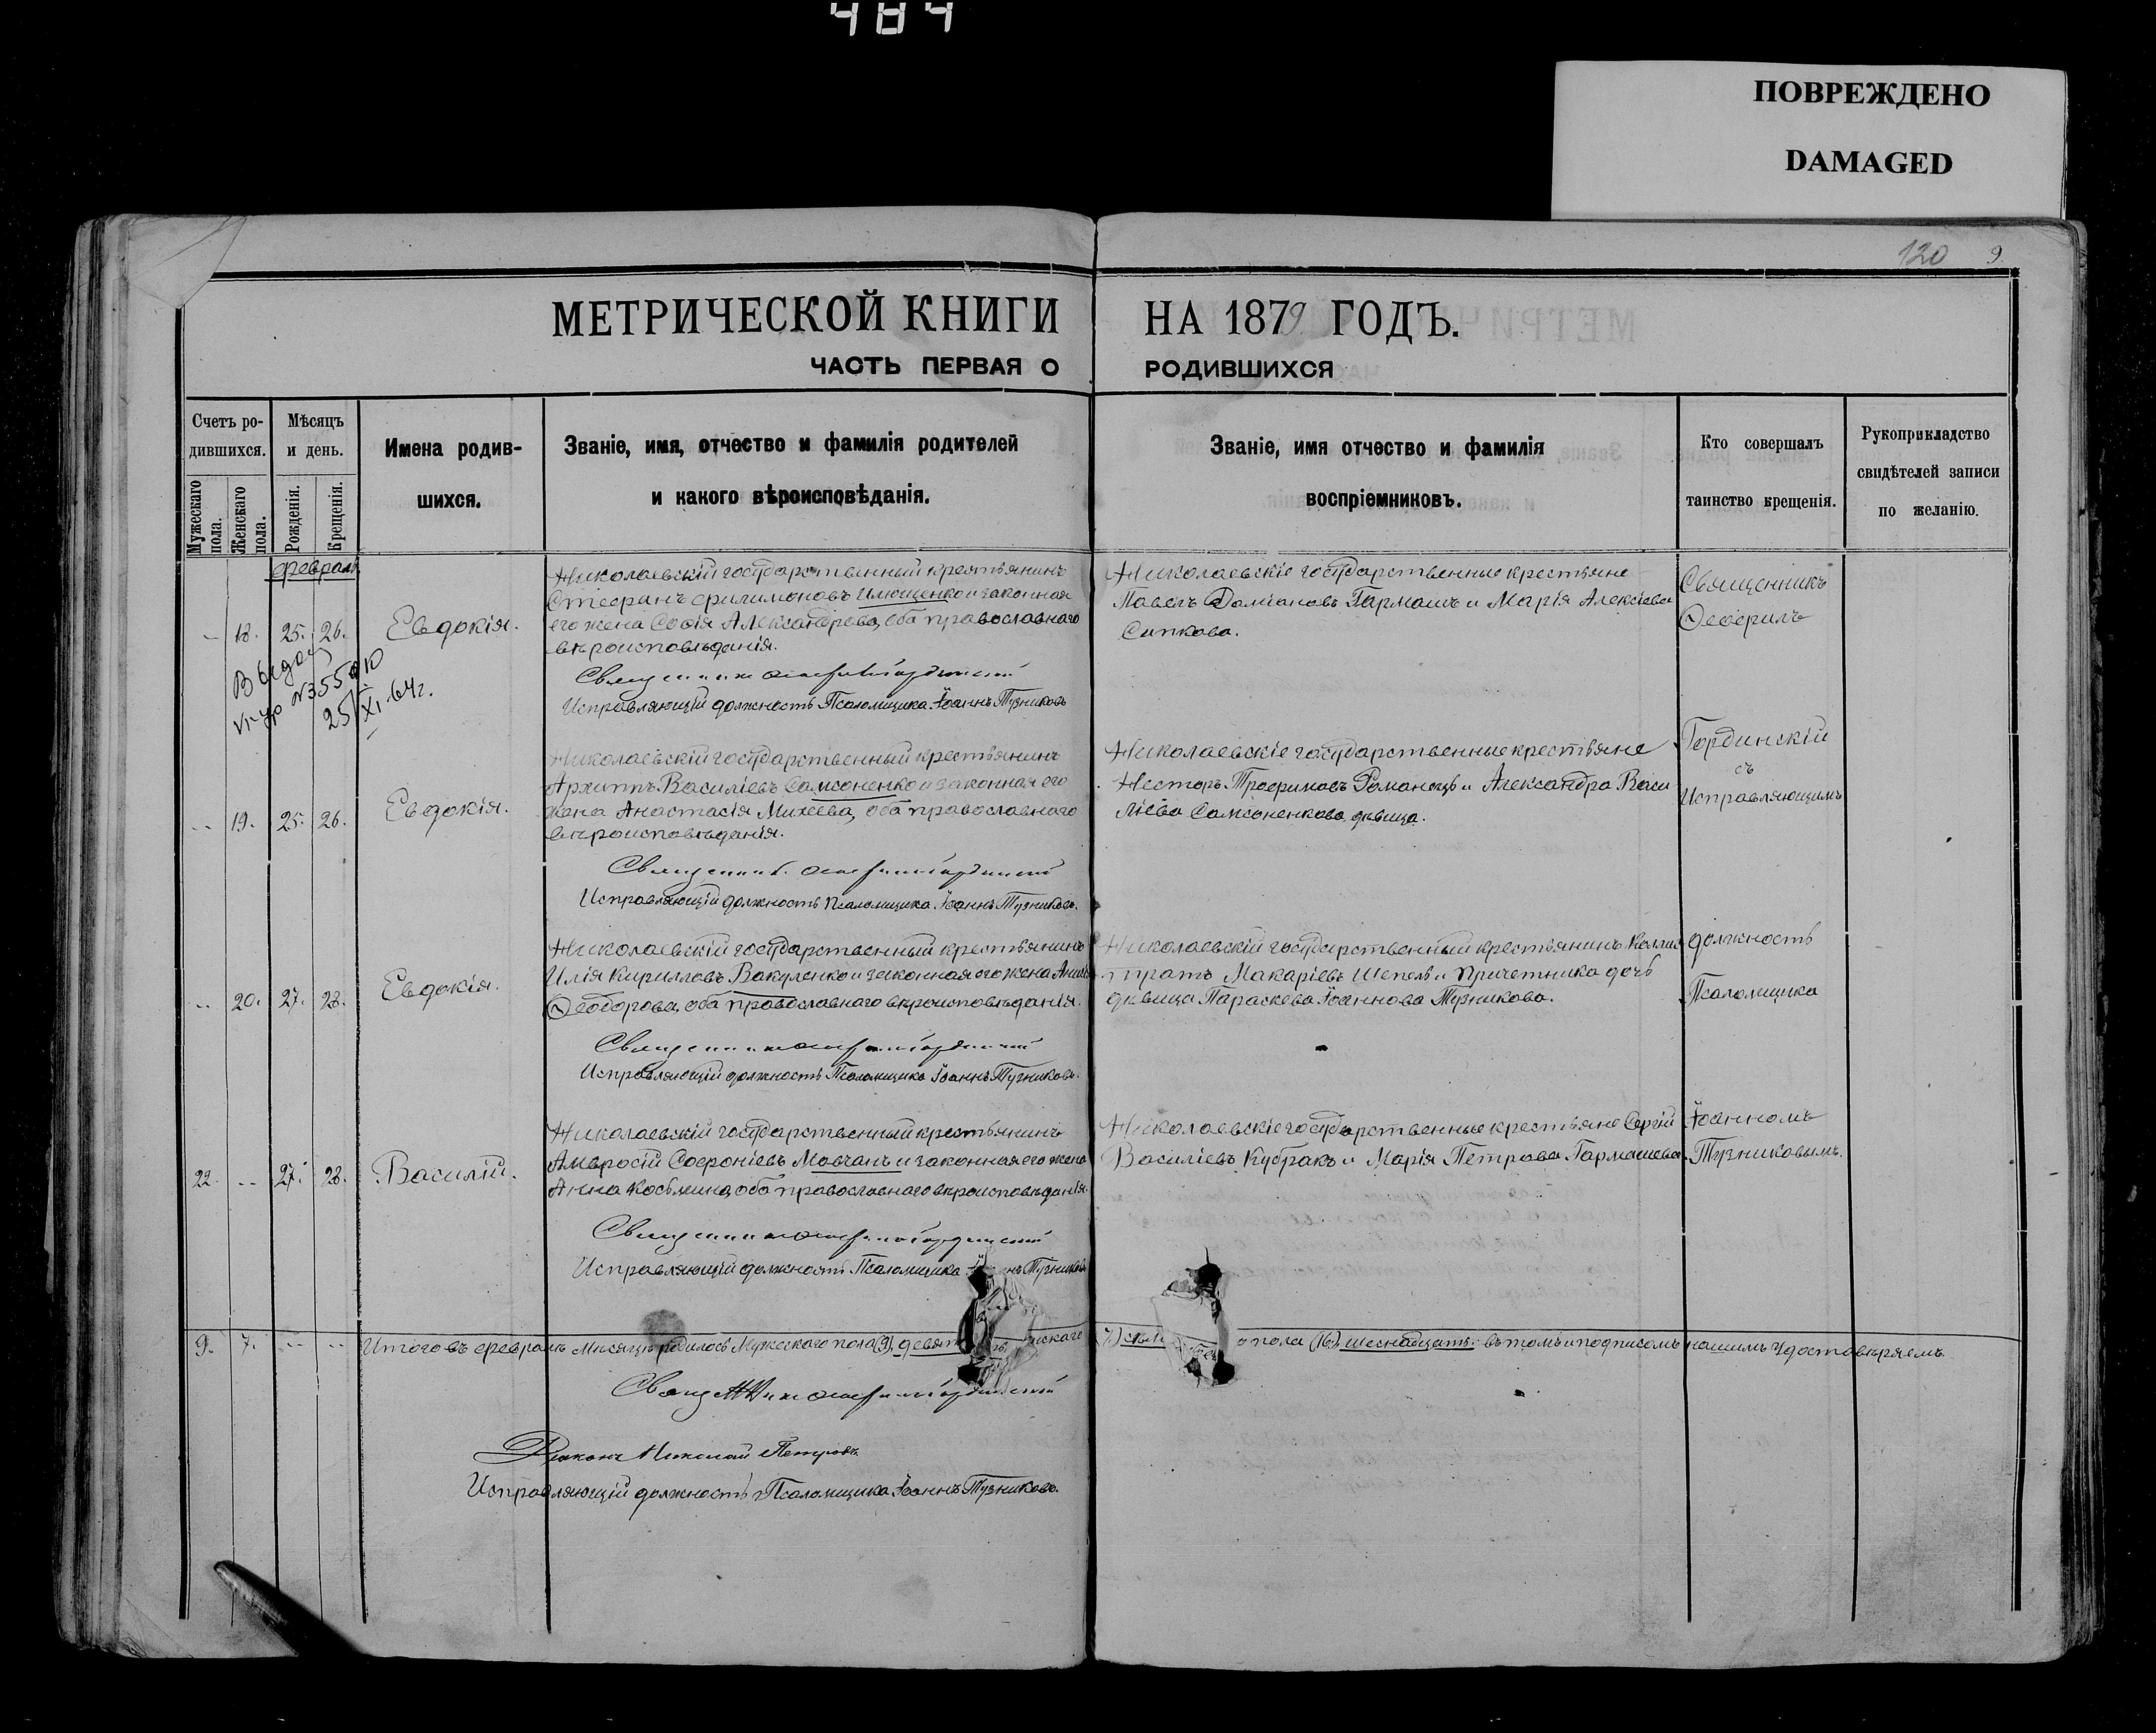 484
ПОВРЕЖДЕНО
DAMAGED
120 9.
МЕТРИЧЕСКОЙ КНИГИ НА 1879 ГОДЪ.
ЧАСТЬ ПЕРВАЯ О РОДИВШИХСЯ
Счетъ ро-
дившихся.
Мужескаго пола.
Женскаго пола.
Мѣсяцъ
и день.
Рожденія.
Крещенія.
Имена родив-
шихся.
Званіе, имя, отчество и фамилія родителей
и какого вѣроисповѣданія.
Званіе, имя отчество и фамилія
воспріемниковъ.
Кто совершалъ
таинство крещенія.
Рукоприкладство
свидѣтелей записи
по желанію.
февраль
-- 18. 25. 26. Евдокія.
Николаевскій государственный крестьянинъ
Стефанъ Филимоновъ Илющенко и законная
его жена Софія Александрова, оба православнаго
вѣроисповѣданія.
Священникъ Гординскій
Исправляющій должность Псаломщика Іоаннъ Тузниковъ
Николаевскіе государственные крестьяне
Павелъ Даміановъ Гармашъ и Марія Алексіева
Сипкова.
25/XI-64г.
-- 19. 25. 26. Евдокія.
Николаевскій государственный крестьянинъ
Архиппъ Василіевъ Самсоненко и законная его
жена Анастасія Михеева, оба православнаго
вѣроисповѣданія.
Священникъ Гординскій
Исправляющій должность Псаломщика Іоаннъ Тузниковъ.
Николаевскіе государственные крестьяне
Несторъ Трофимовъ Романецъ и Александра Васи
ліева Самсоненкова, дѣвица.
-- 20. 27. 28. Евдокія.
Николаевскій государственный крестьянинъ
Илія Кирилловъ Вакуленко и законная его жена Анна
Ѳеодорова, оба православнаго вѣроисповѣданія.
Священникъ Гординскій
Исправляющій должность Псаломщика Іоаннъ Тузниковъ.
Николаевскій государственный крестьянинъ Каллис
тратъ Макаріевъ Шепель и причетника дочь
дѣвица Параскева Іоаннова Тузникова.
22. -- 27. 28. Василій.
Николаевскій государственный крестьянинъ
Амвросій Софроніевъ Мовчанъ и законная его жена
Анна Косьмина, оба православнаго вѣроисповѣданія.
Священникъ Гординскій
Исправляющій должность Псаломщика Тузниковъ
Николаевскіе государственные крестьяне Сергій
Василіевъ Кубракъ и Марія Петрова Гармашева.
Священникъ
Ѳеофилъ
Гординскій
съ
Исправляющимъ
должность
Псаломщика
Іоанномъ
Тузниковымъ.
9. 7. -- -- Итого въ февралѣ мѣсяцѣ родилось Мужескаго пола (9) девять пола (16) шеснадцать: въ томъ и подписомъ нашимъ удостовѣряемъ.
Священникъ Гординскій
Діаконъ Николай Петровъ
Исправляющій должность Псаломщика Іоаннъ Тузниковъ.